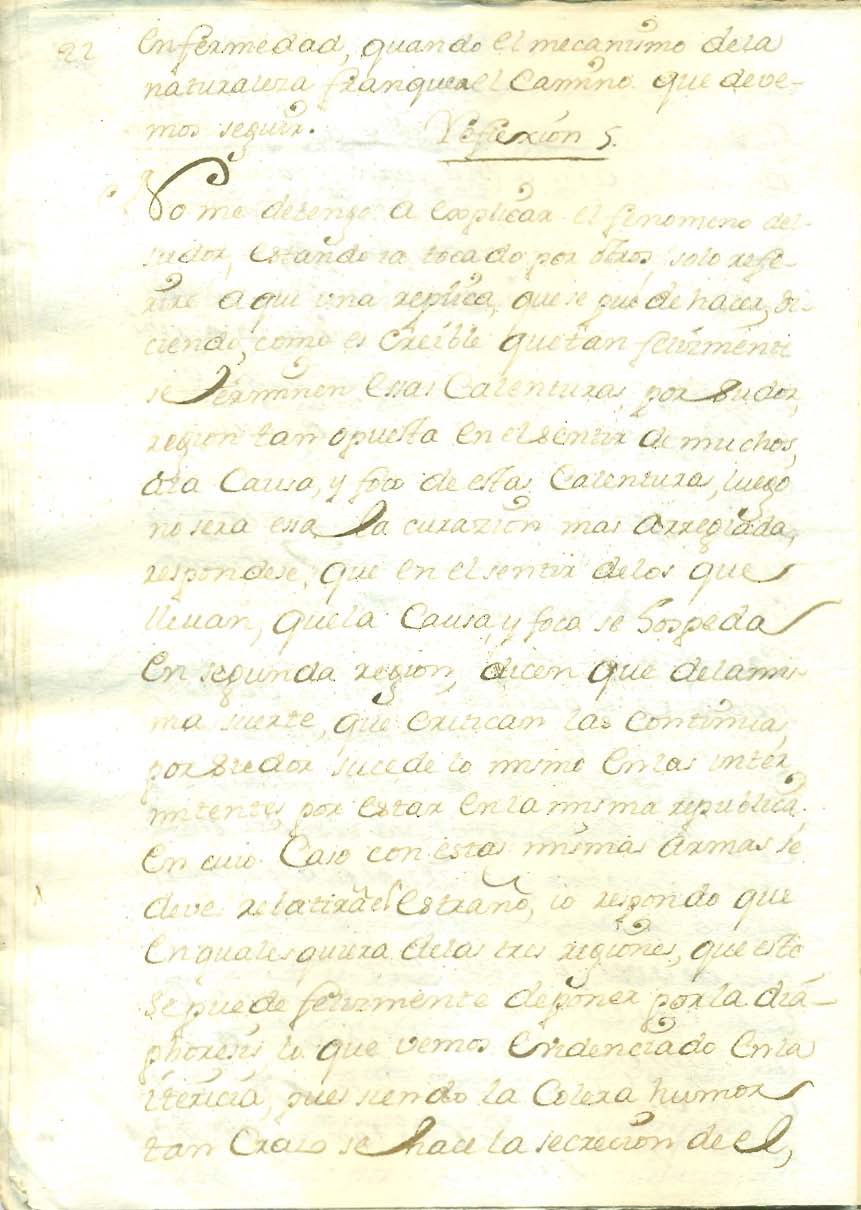 22 enfermedad, quando el mecanismo dela
naturaleza franquea el Camino que deve-
mos seguir.
Reflexión 5.
No me detengo a explicar el fenomeno del
sudor, estando ia tocado por otros, solo refe-
rire aqui una replica, que se puede hacer, di-
ciendo, como es creible que tan felizmente
se terminen esas Calenturas, por sudor,
region tan opuesta en el sentir de muchos,
ala Causa, y foco de estas Calenturas, luego
no sera esa la curazion mas arreglada,
respondese, que en el sentir delos que
llevan, que la Causa, y foco se hospeda
en segunda region, dicen que dela mis-
ma suerte, que critican las continuas,
por sudor sucede lo mismo en las inter
mitentes, por estar en la misma republica.
en cuio Caso con estas mismas armas se
deve el estraño, io respondo que
en qualesquiera delas tres regiones, que este
se puede felizmente deponer por la dia-
phoresis, lo que vemos evidenciado en la
itericia, pues siendo la Colera humor
tan Craso se hace la secrecion de el,